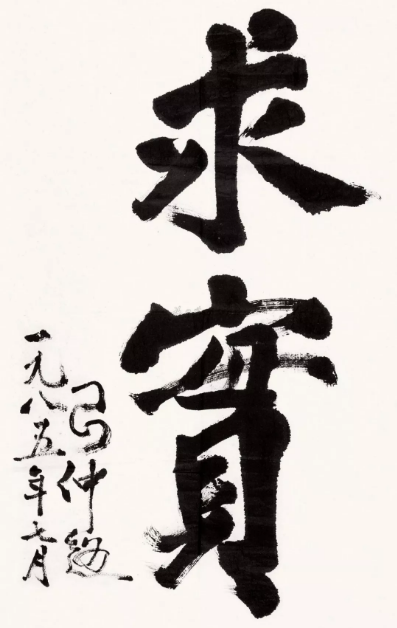 求實
习仲勋
一九八五年七月